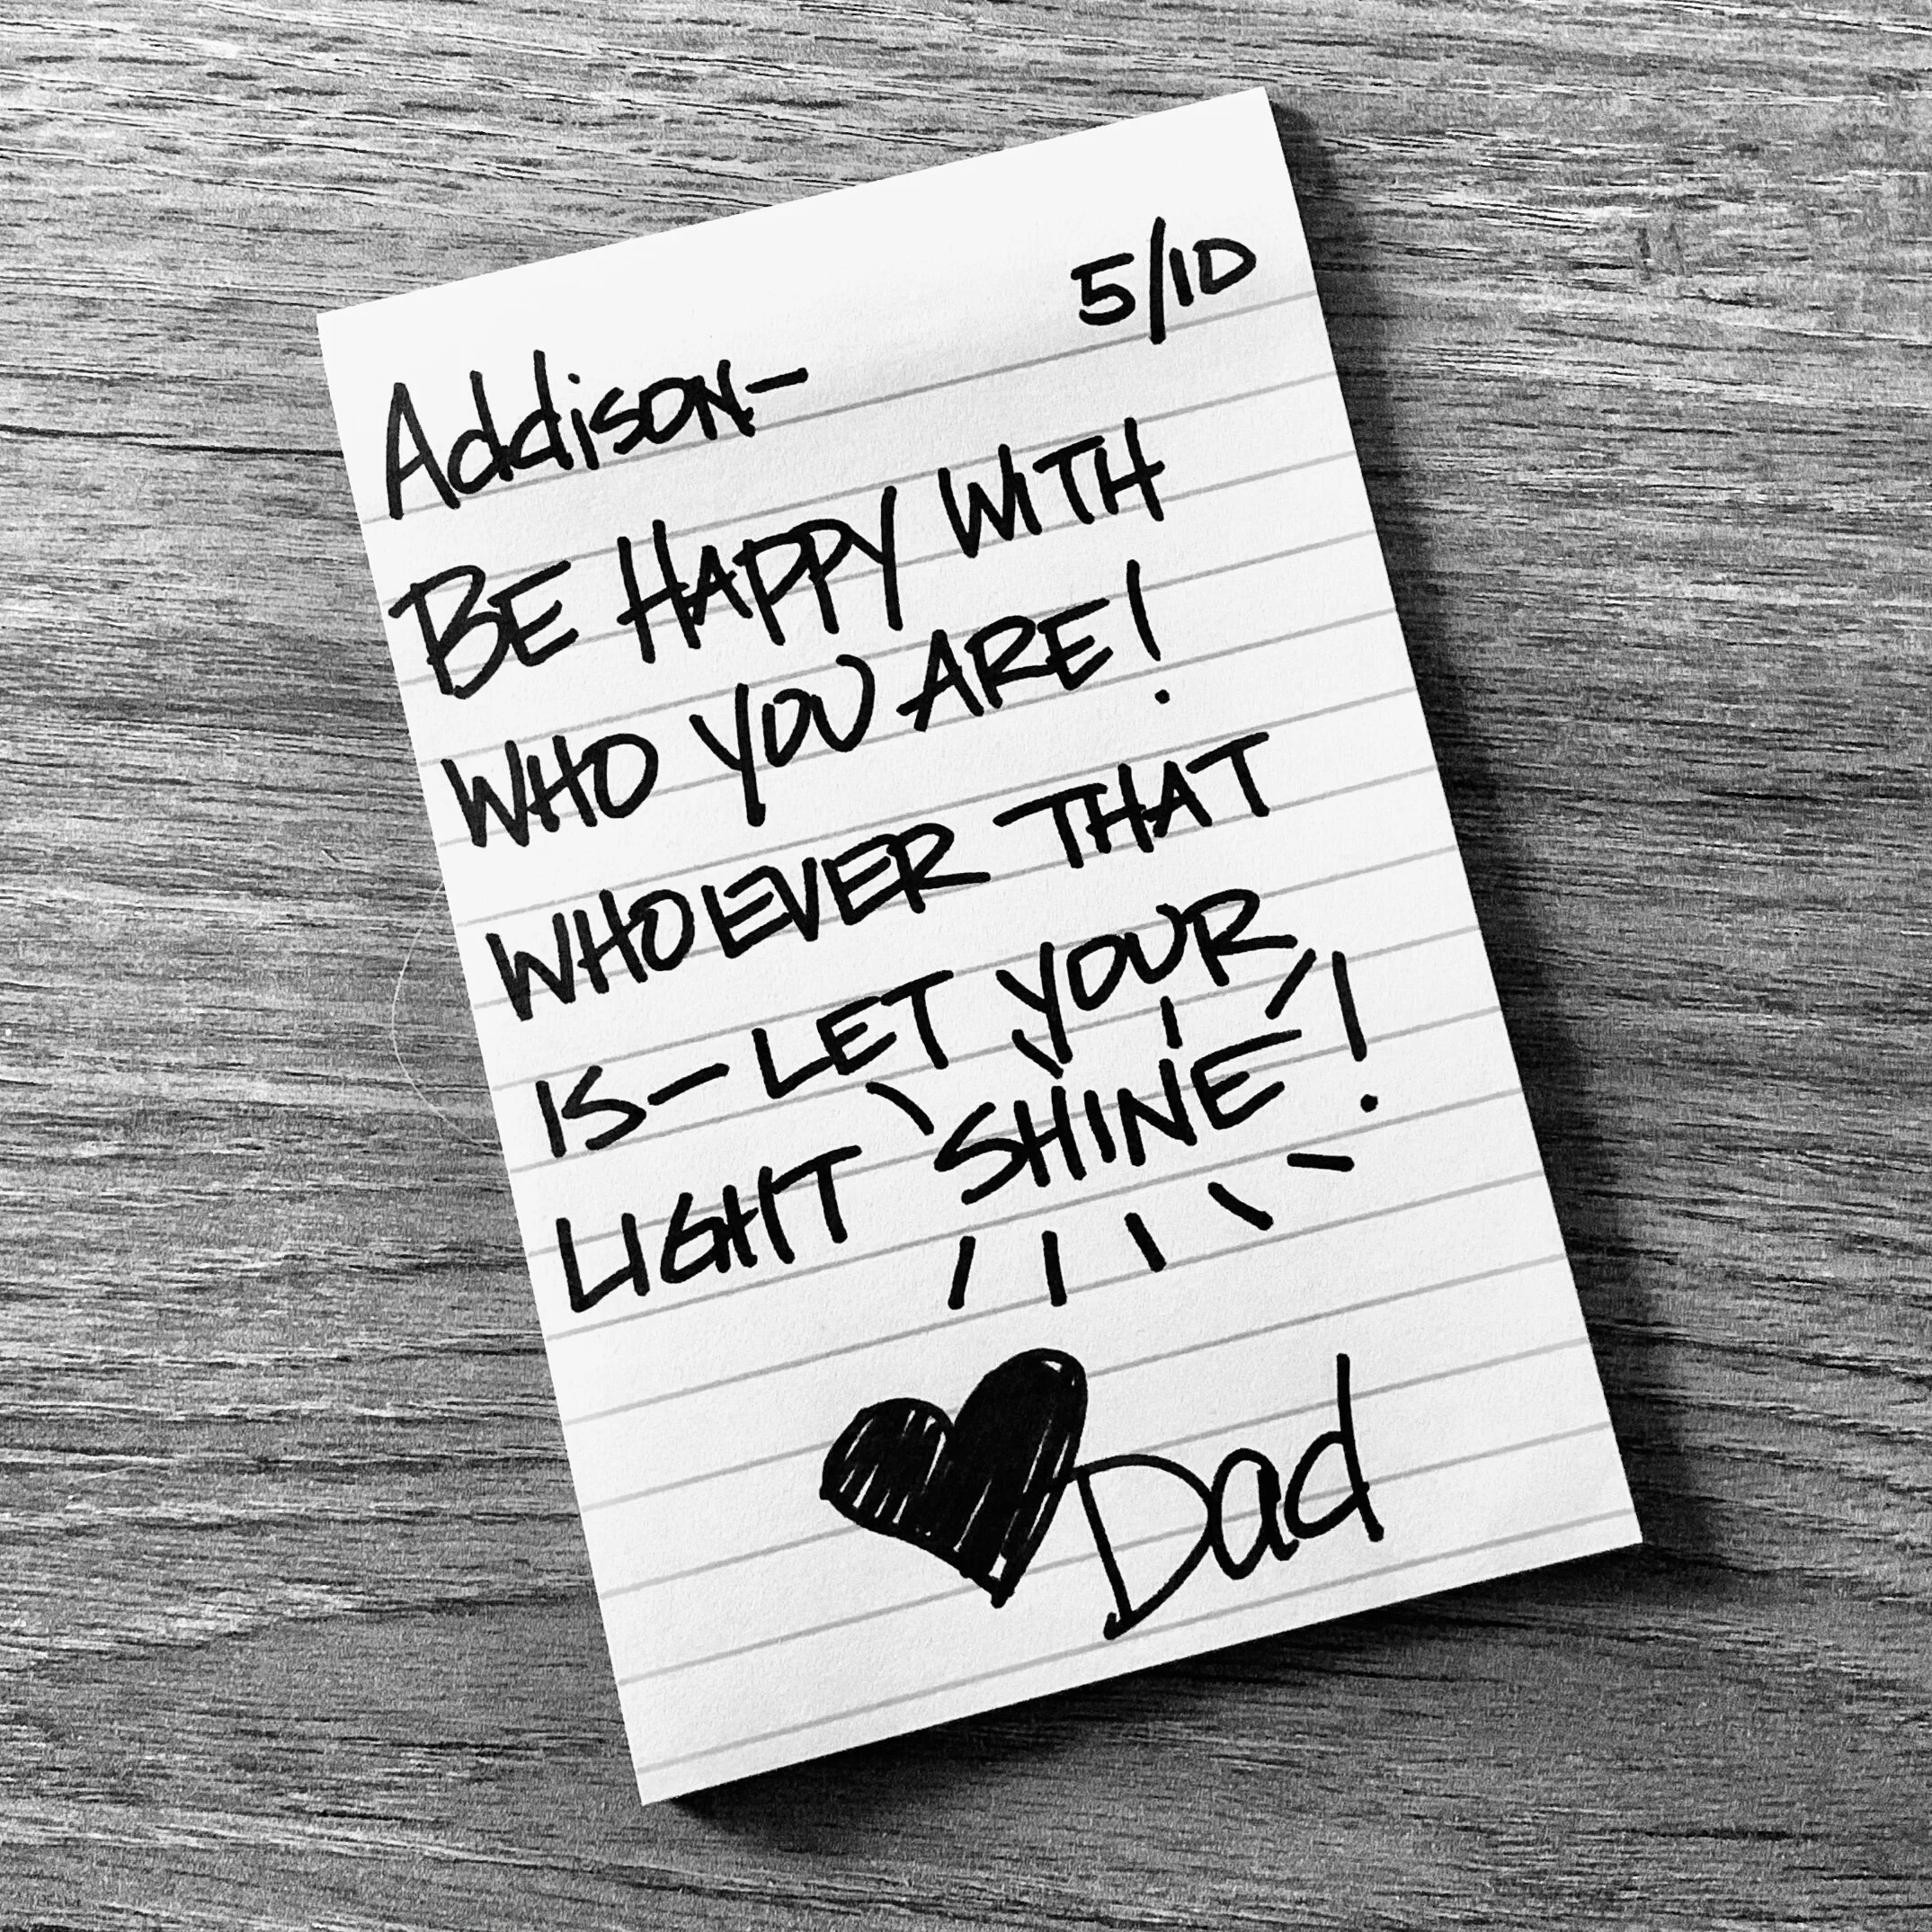 5/10
Addison-
BE HAPPY WITH
WHO YOU ARE!
WHOEVER THAT
IS-LET YOUR
LIGHT SHINE!
Dad